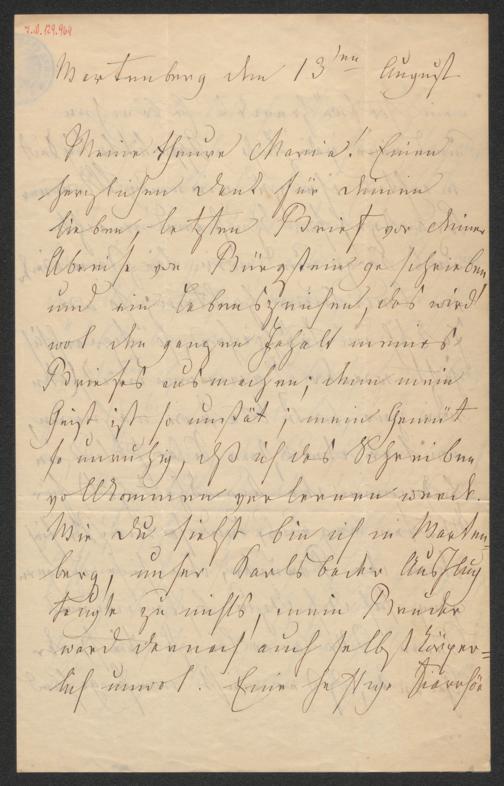 I.N. 129.969
Wartenberg den 13ten August
Meine theure Marie! Einen
herzlichen Dank für deinen
lieben, letzten Brief vor deiner
Abreise von Bürgstein geschrieben
und ein Lebenszeichen, das wird
wol den ganzen Inhalt meines
Briefes ausmachen; denn mein
Geist ist so unstät; mein Gemüt
so unruhig, daß ich das Schreiben
vollkommen verlernen werde.
Wie du siehst bin ich in Warten-
berg, unser Karlsbader Ausflug
taugte zu nichts, mein Bruder
ward darnach auch selbst körper=
lich unwol. Eine heftige Diarrhöe